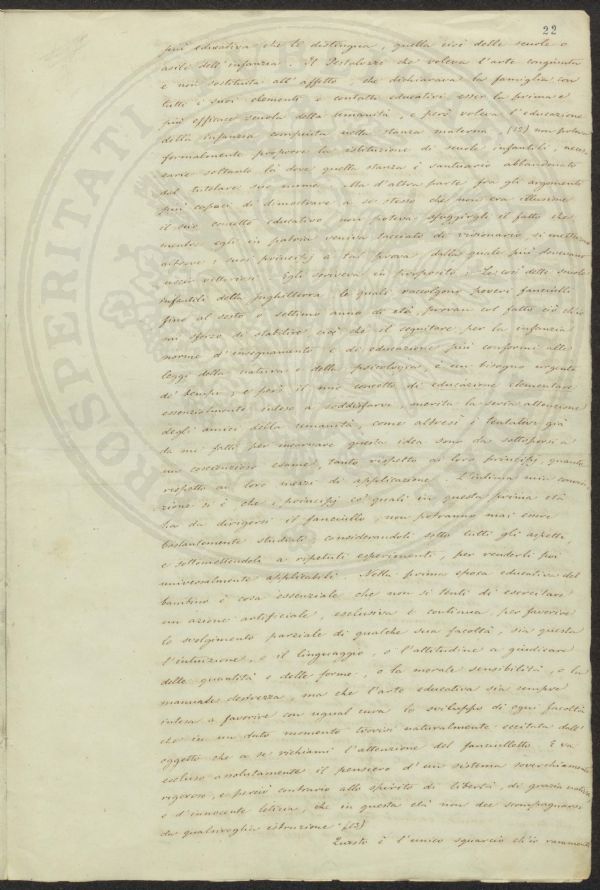 22
più educativa che le distingua, quella cioè delle scuole o
asili dell'infanzia. Il Pestalozzi che voleva l'arte congiunta
e non sostituita all'affetto, che dichiarava la famiglia con
tutti i suoi elementi e contatti educativi esser la prima e
più efficace scuola della umanità, e però voleva l'educazione
della infanzia compiuta nella stanza materna, (12) non poteva
formalmente proporre la istituzione di scuole infantili, neces
sarie soltanto là dove quella stanza è santuario abbandonato
dal tutelare suo nume. Ma d'altra parte fra gli argomenti
più capaci di dimostrare a se stesso che non era illusione
il suo concetto educativo non poteva sfuggirgli il fatto che
mentre egli in patria veniva tacciato di visionario, si mettevano
altrove i suoi principj a tal prova, dalla quale più
uscir vittoriosi. Egli scriveva in proposito: Le così dette scuole
infantili della Inghilterra, le quali raccolgono poveri fanciulli
fino al sesto o settimo anno di età, provan col fatto ciò ch'io
mi sforzo di stabilire cioè che il seguitare per la infanzia
norme d'insegnamento e di educazione più conformi alle
leggi della natura e della psicologia, è un bisogno urgente
de' tempi; e però il mio concetto di educazione elementare
essenzialmente inteso a soddisfarvi, merita la seria attenzione
degli amici della umanità, come altresì i tentativi già
da me fatti per incarnare questa idea sono da sottoporsi a
un coscienzioso esame, tanto rispetto ai loro principj, quanto
rispetto ai loro mezzi di applicazione. L'intima mia convin
zione si è che i principj co' quali in questa prima età
ha da dirigersi il fanciullo, non potranno mai essere
bastantemente studiati considerandoli sotto tutti gli aspetti,
e sottomettendoli a ripetuti esperimenti, per renderli poi
universalmente applicabili. Nella prima epoca educativa del
bambino è cosa essenziale che non si tenti di esercitare
un'azione artificiale, esclusiva e continua, per favorire
lo svolgimento parziale di qualche sua facoltà, sia questa
l'intuizione, o il linguaggio, o l'attitudine a giudicare
delle quantità e delle forme, o la morale sensibilità, o la
manuale destrezza, ma che l'arte educativa sia sempre
intesa a favorire con ugual cura lo sviluppo di ogni facoltà
che in un dato momento trovisi naturalmente eccitata dall'
oggetto che a se richiami l'attenzione del fanciulletto. E va
escluso assolutamente il pensiero d'un sistema soverchiamente
rigoroso, e perciò contrario allo spirito di libertà, di grazia
e d'innocente letizia, che in questa età non dee scompagnarsi
da qualsivoglia istruzione. (13)
Questo è l'unico squarcio ch'io
ROSPERITATI